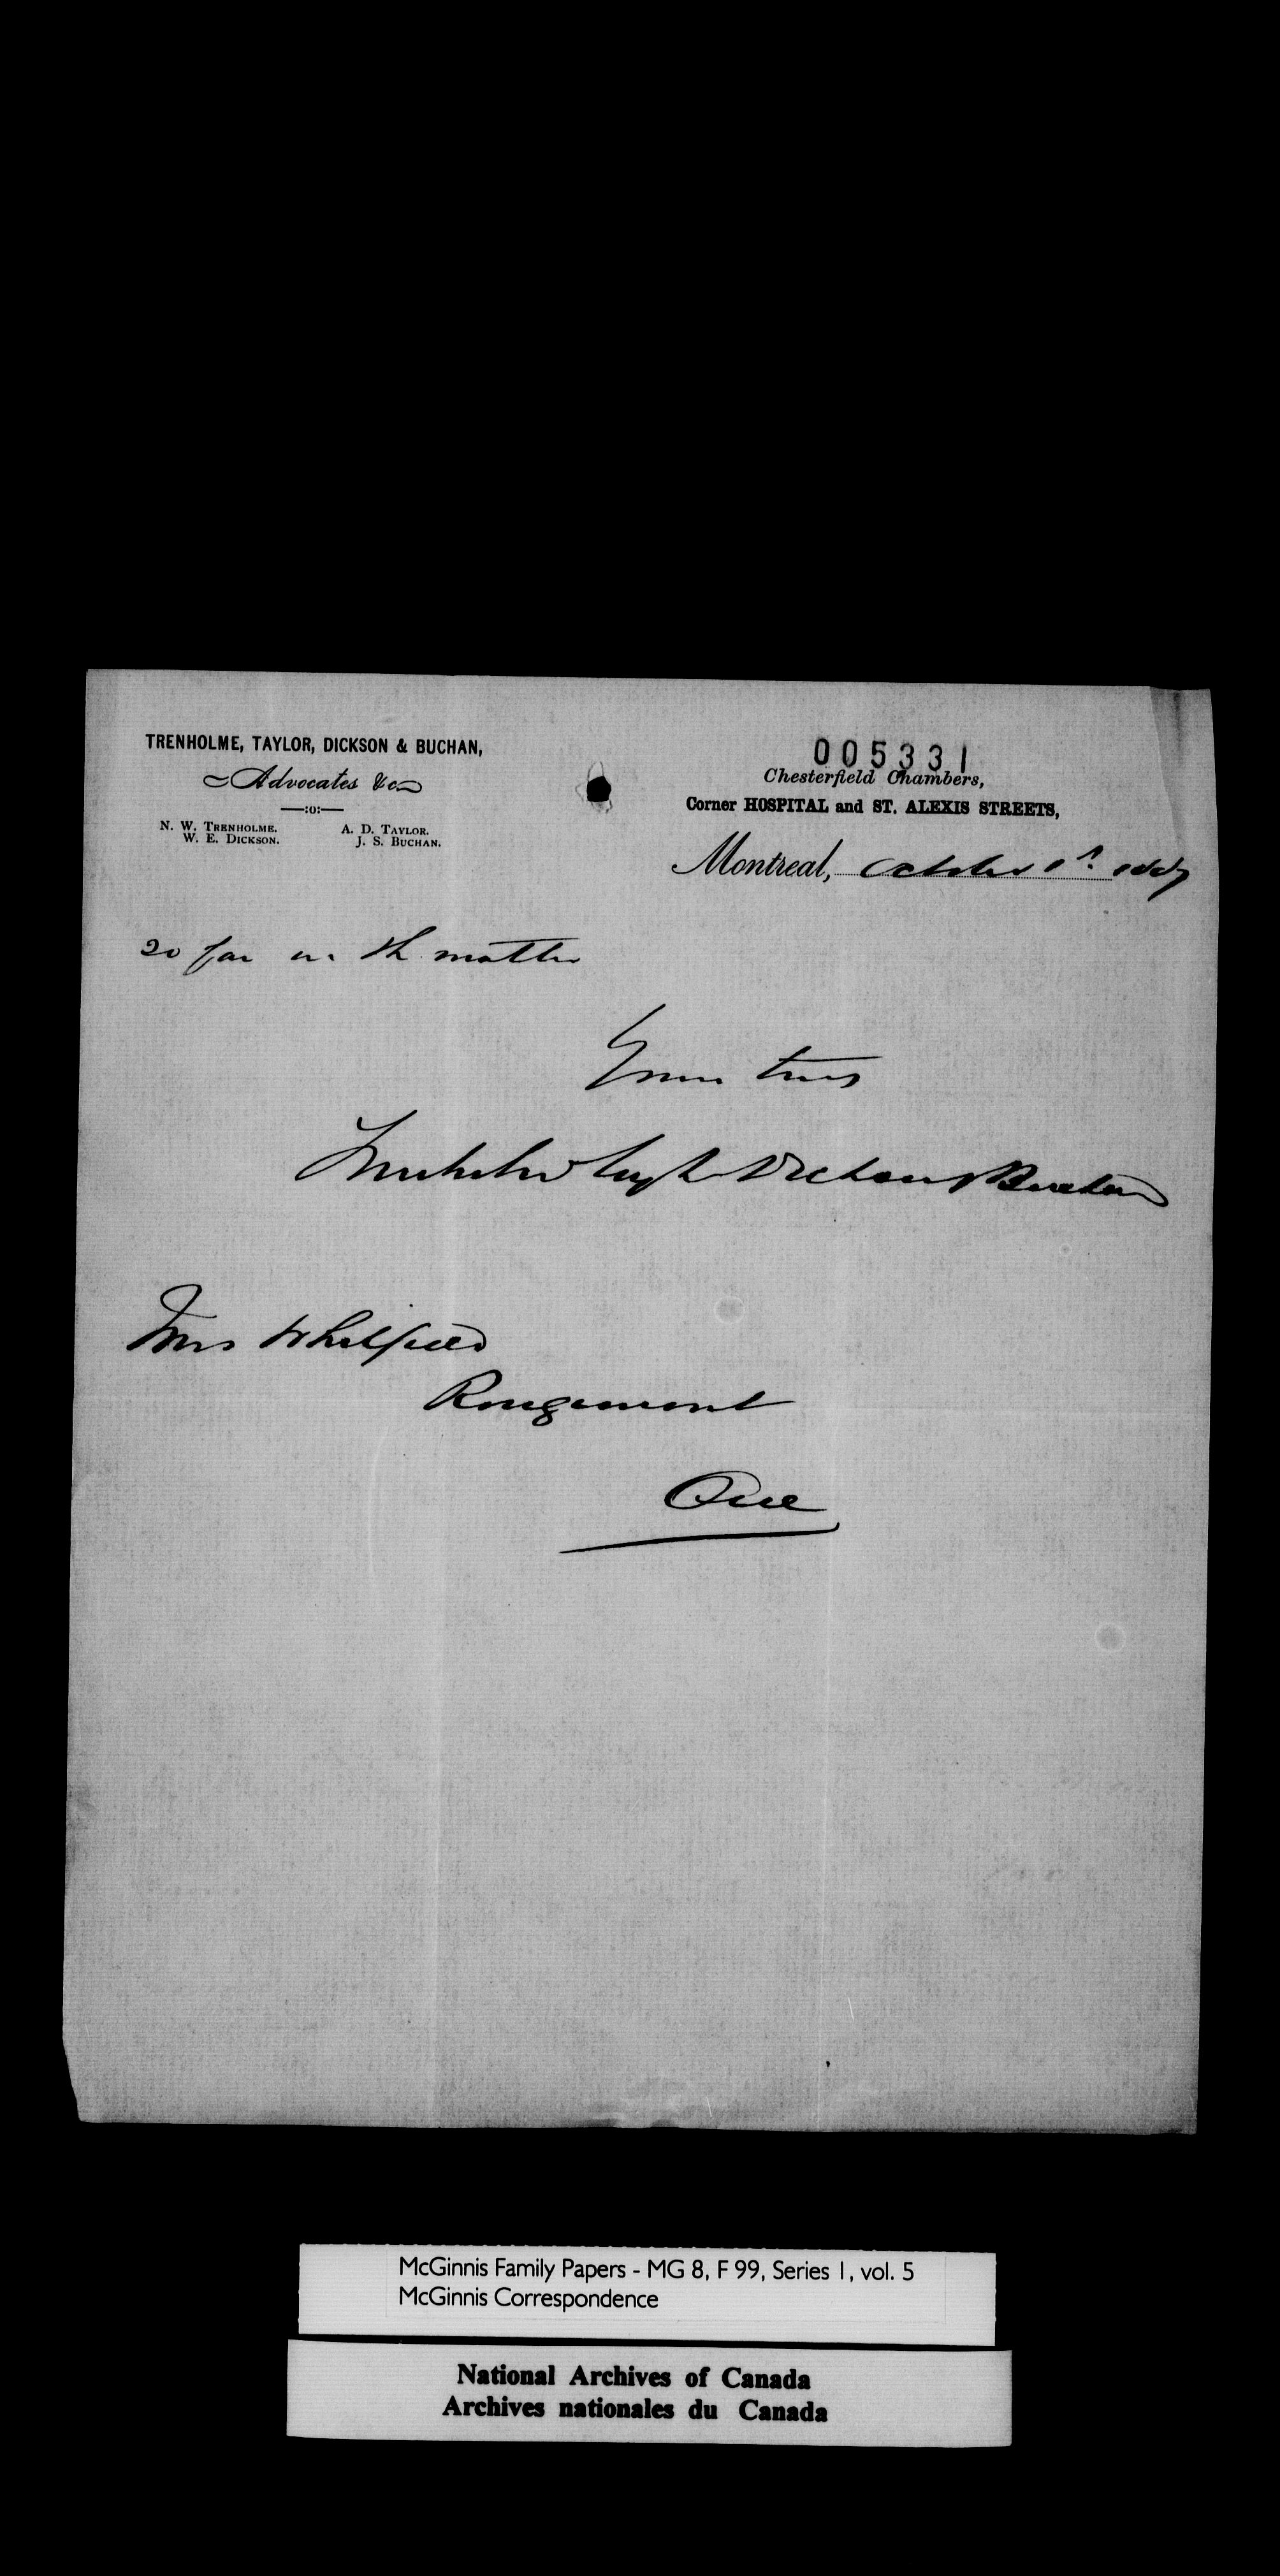 TRENHOLME, TAYLOR, DICKSON & BUCHAN,
Advocates &c
—:o:—
N. W. TRENHOLME. A. D. TAYLOR.
W. E. DICKSON. J. S. BUCHAN.
005331
Chesterfield Chambers,
Corner HOSPITAL and ST. ALEXIS STREETS,
Montreal, October 1st 1887
so far in the matter
Yours truly
Trenholme Taylor Dickson & Buchan
Mrs Whitfield
Rougemont
Que
McGinnis Family Papers - MG 8, F 99, Series 1, vol. 5
McGinnis Correspondence
National Archives of Canada
Archives nationales du Canada